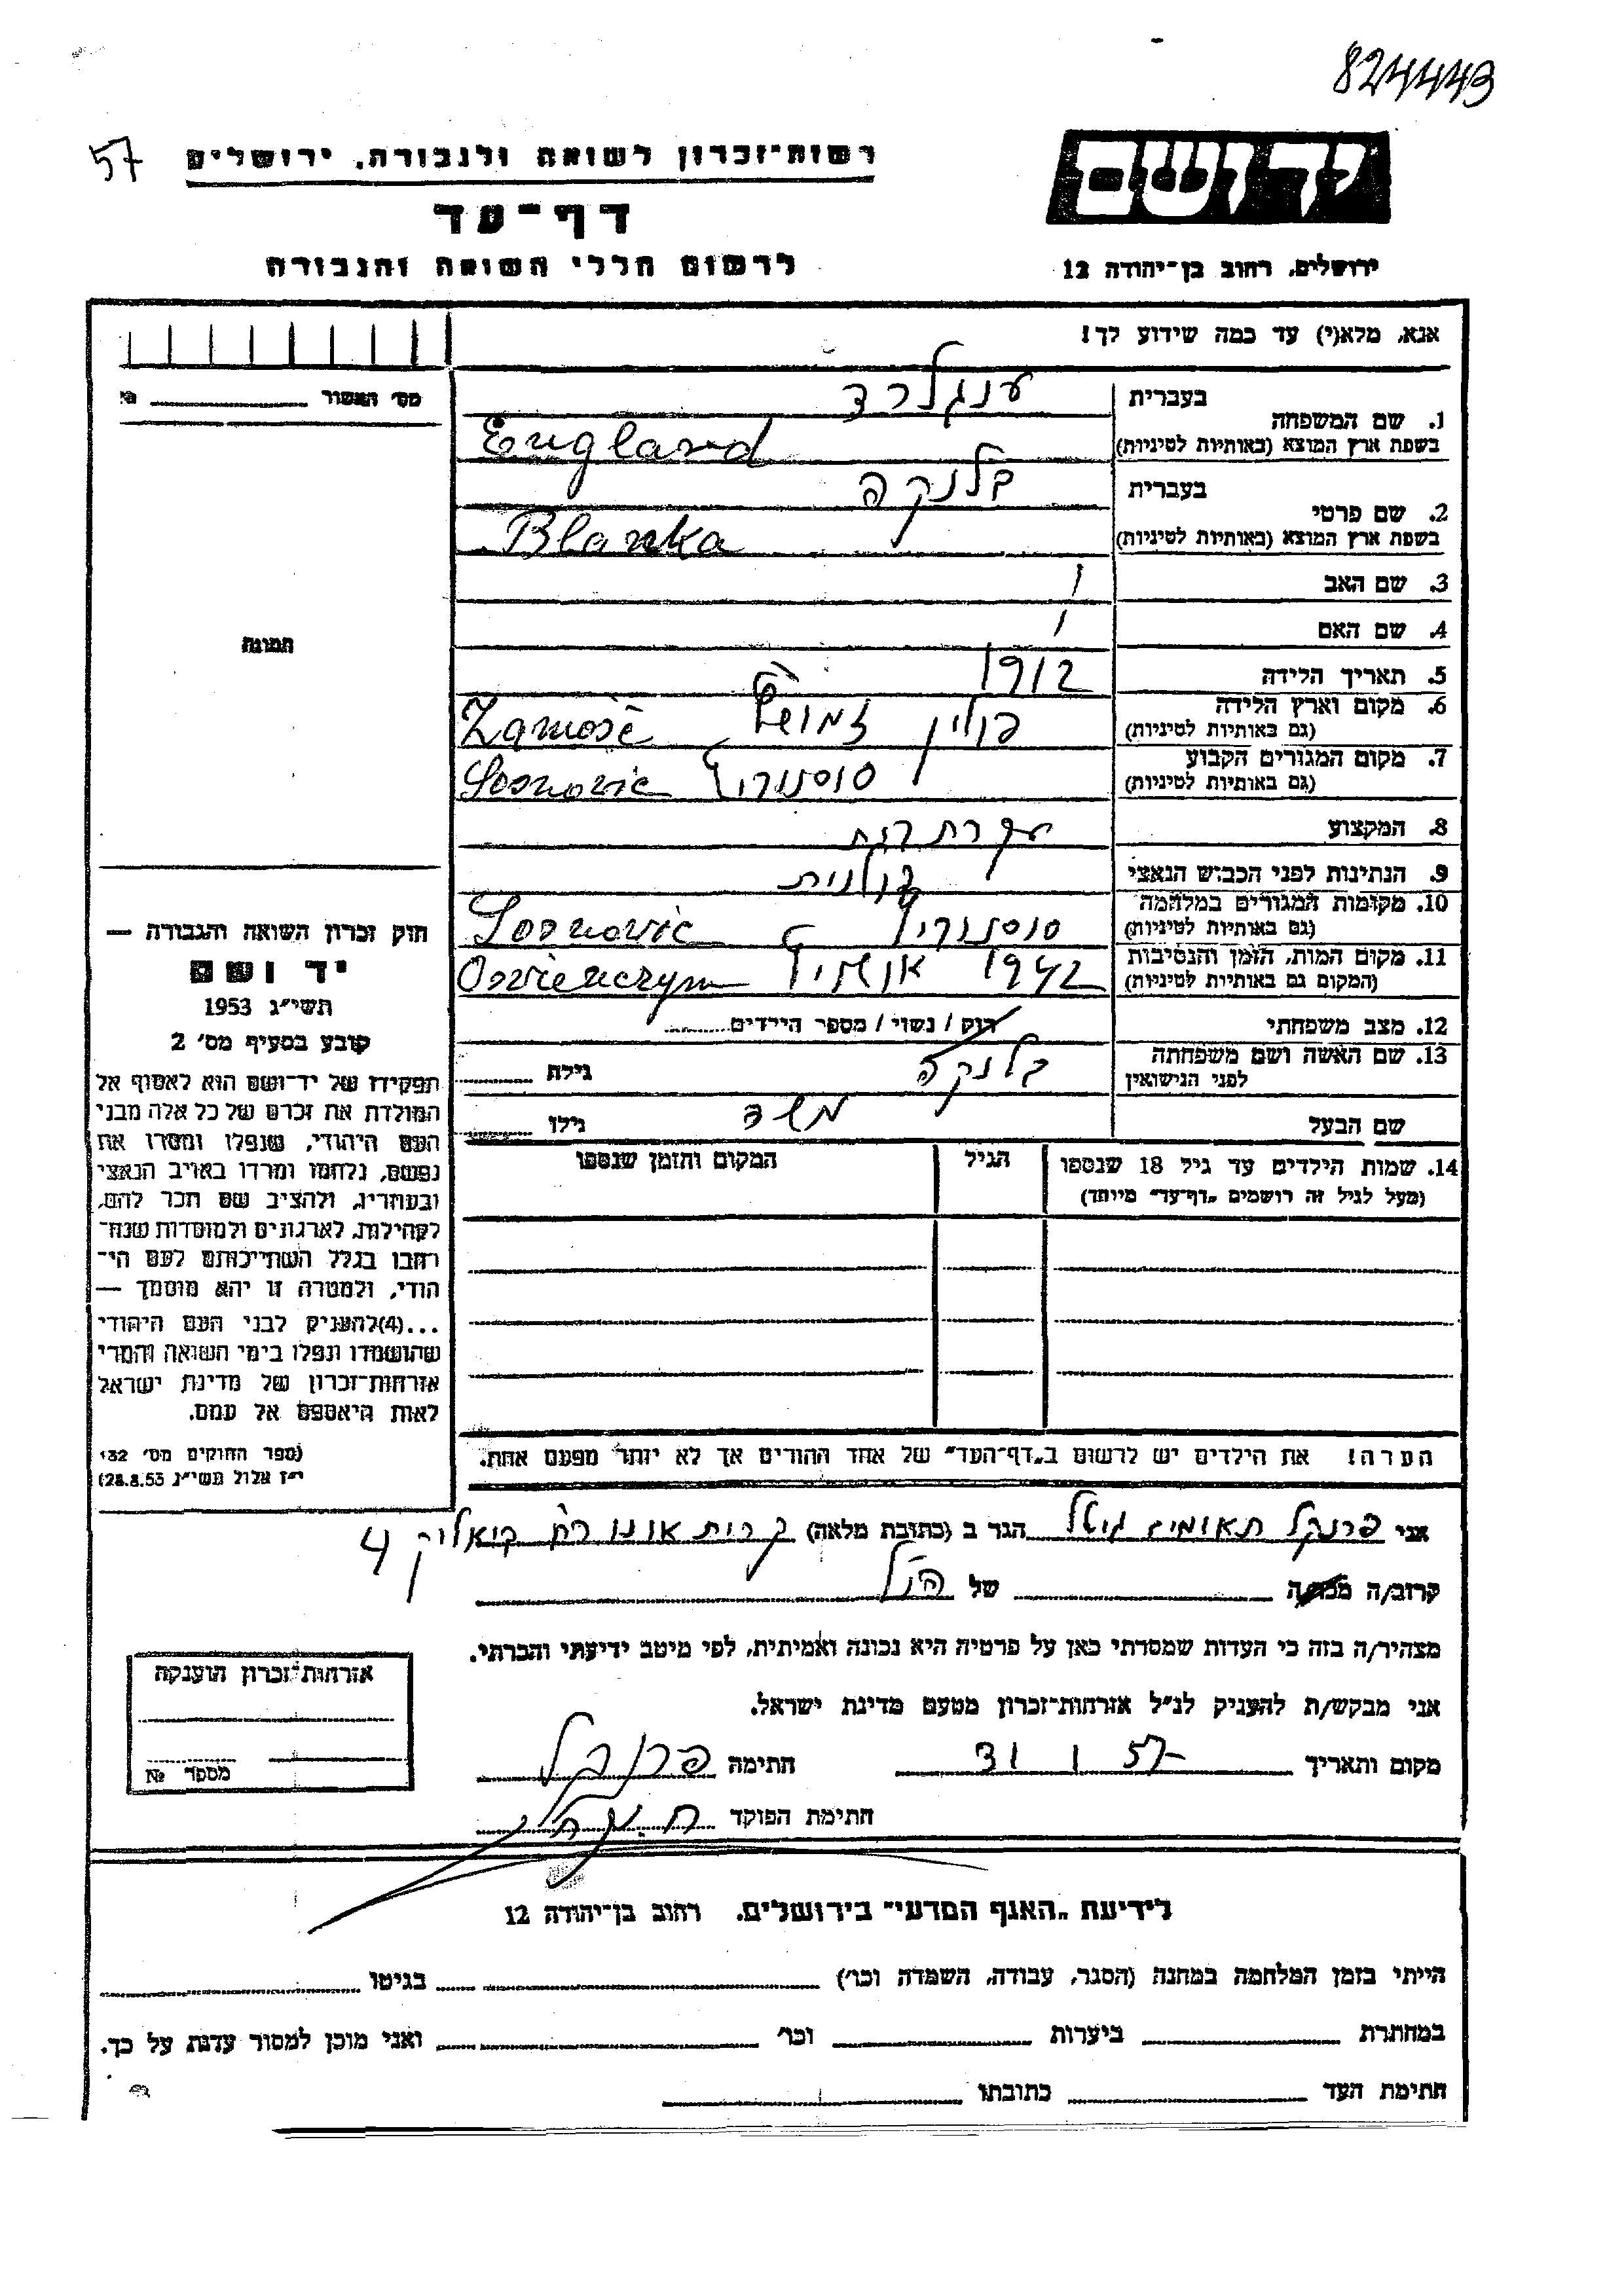 824443
57
רשות־זכרון לשואה ולגבורה, ירושלים
יד ושם
דף־עד
לרשום חללי השואה והגבורה
ירושלים, רחוב בן־יהודה 12
אנא, מלא(י) עד כמה שידוע לך!
מס׳ האשור № 
בעברית ענגלרד
1. שם המשפחה
בשפת ארץ המוצא (באותיות לטיניות) England
בעברית בלנקה
2. שם פרטי
בשפת ארץ המוצא (באותיות לטיניות) Blanka
3. שם האב /
4. שם האם /
5. תאריך הלידה 1912
6. מקום וארץ הלידה פולין זמושץ Zamość
(גם באותיות לטיניות)
7. מקום המגורים הקבוע סוסנוביץ Sosnovic
(גם באותיות לטיניות)
8. המקצוע עקרת בית
9. הנתינות לפני הכבוש הנאצי פולנית
10. מקומות המגורים במלחמה סוסנוביץ Sosnovic
(גם באותיות לטיניות)
11. מקום המות, הזמן והנסיבות 1942 אושויץ Osvienczym
(המקום גם באותיות לטיניות)
12. מצב משפחתי רוק / נשוי / מספר הילדים
13. שם האשה ושם משפחתה בלנקה גילה
לפני הנישואין
שם הבעל גילו
14. שמות הילדים עד גיל 18 שנספו הגיל המקום והזמן שנספו
(מעל לגיל זה רושמים „דף־עד״ מיוחד)
הערה! את הילדים יש לרשום ב„דף־העד״ של אחד ההורים אך לא יותר מפעם אחת.
תמונה
חוק זכרון השואה והגבורה —
יד ושם
תשי״ג 1953
קובע בסעיף מס׳ 2
תפקידו של יד־ושם הוא לאסוף אל
המולדת את זכרם של כל אלה מבני
העם היהודי, שנפלו ומסרו את
נפשם, נלחמו ומרדו באויב הנאצי
ובעוזריו, ולהציב שם וזכר להם,
לקהילות, לארגונים ולמוסדות שנח־
רבו בגלל השתייכותם לעם הי־
הודי, ולמטרה זו יהא מוסמך —
...(4)להעניק לבני העם היהודי
שהושמדו ונפלו בימי השואה והמרי
אזרחות־זכרון של מדינת ישראל
לאות היאספם אל עמם.
(ספר החוקים מס׳ 132
י״ז אלול תשי״ג 28.8.53)
אני פרנקל תאומים גיטל הגר ב (כתובת מלאה) קרית אונו רח׳ ביאליק 4
קרוב/ה מכר/ה של הנ״ל
מצהיר/ה בזה כי העדות שמסרתי כאן על פרטיה היא נכונה ואמיתית, לפי מיטב ידיעתי והכרתי.
אני מבקש/ת להעניק לנ״ל אזרחות־זכרון מטעם מדינת ישראל.
מקום ותאריך 31 1 57 חתימה פרנקל
חתימת הפוקד
אזרחות־זכרון הוענקה
מספר №
לידיעת „האגף המדעי״ בירושלים. רחוב בן־יהודה 12
הייתי בזמן המלחמה במחנה (הסגר, עבודה, השמדה וכו׳) בגיטו
במחתרת ביערות וכו׳ ואני מוכן למסור עדות על כך.
חתימת העד כתובתו